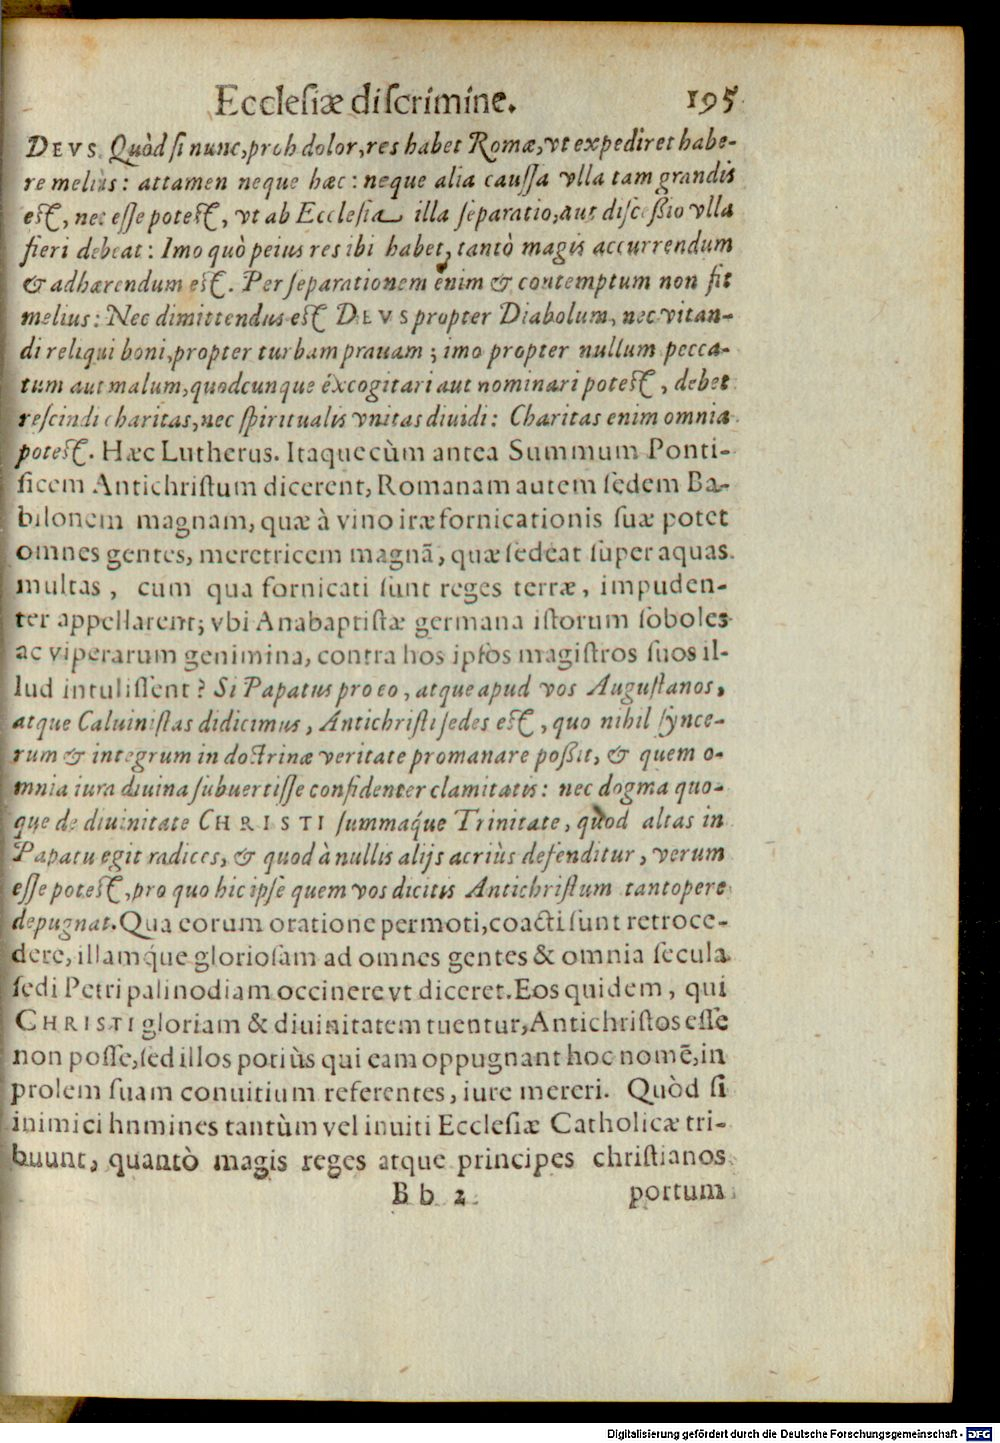 Ecclesiæ discrimine. 195
DEVS. Quòd si nunc, proh dolor, res habet Romæ, vt expediret habe-
re melius: attamen neque hæc: neque alia caussa vlla tam grandis
est, nec esse potest, vt ab Ecclesia illa separatio, aut discessio vlla
fieri debeat: Imo quò peius res ibi habet, tantò magis accurrendum
& adhærendum est. Per separationem enim & contemptum non fit
melius: Nec dimittendus est DEVS propter Diabolum, nec vitan-
di reliqui boni, propter turbam prauam; imo propter nullum pecca-
tum aut malum, quodcunque excogitari aut nominari potest, debet
rescindi charitas, nec spiritualis vnitas diuidi: Charitas enim omnia
potest. Hæc Lutherus. Itaque cùm antea Summum Ponti-
ficem Antichristum dicerent, Romanam autem sedem Ba-
bilonem magnam, quæ à vino iræ fornicationis suæ potet
omnes gentes, meretricem magnã, quæ sedeat super aquas
multas, cum qua fornicati sunt reges terræ, impuden-
ter appellarent; vbi Anabaptistæ germana istorum soboles
ac viperarum genimina, contra hos ipsos magistros suos il-
lud intulissent? Si Papatus pro eo, atque apud vos Augustanos,
atque Caluinistas didicimus, Antichristi sedes est, quo nihil synce-
rum & integrum in doctrinæ veritate promanare possit, & quem o-
mnia iura diuina subuertisse confidenter clamitatis: nec dogma quo-
que de diuinitate CHRISTI summaq́ue Trinitate, quod altas in
Papatu egit radices, & quod à nullis alijs acriùs defenditur, verum
esse potest, pro quo hic ipse quem vos dicitis Antichristum tantopere
depugnat. Qua eorum oratione permoti, coacti sunt retroce-
dere, illamq́ue gloriosam ad omnes gentes & omnia secula
sedi Petri palinodiam occinere vt diceret. Eos quidem, qui
CHRISTI gloriam & diuinitatem tuentur, Antichristos esse
non posse, sed illos potiùs qui eam oppugnant hoc nomẽ, in
prolem suam conuitium referentes, iure mereri. Quòd si
inimici hnmines tantùm vel inuiti Ecclesiæ Catholicæ tri-
buunt, quantò magis reges atque principes christianos
B b 2 portum
Digitalisierung gefördert durch die Deutsche Forschungsgemeinschaft - DFG